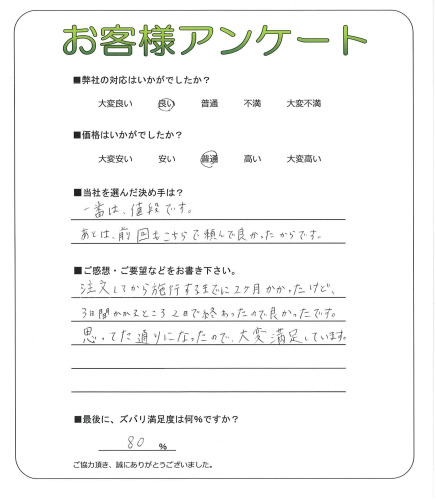 お客様アンケート
■弊社の対応はいかがでしたか?
大変良い 良い 普通 不満 大変不満
■価格はいかがでしたか?
大変安い 安い 普通 高い 大変高い
■当社を選んだ決め手は?
一番は、値段です。
あとは、前回もこちらで頼んで良かったからです。
■ご感想・ご要望などをお書き下さい。
注文してから施行するまでに2ヶ月かかったけど、
3日間かかるところ2日で終わったので良かったです。
思ってた通りになったので、大変満足しています。
■最後に、ズバリ満足度は何%ですか?
80 %
ご協力頂き、誠にありがとうございました。